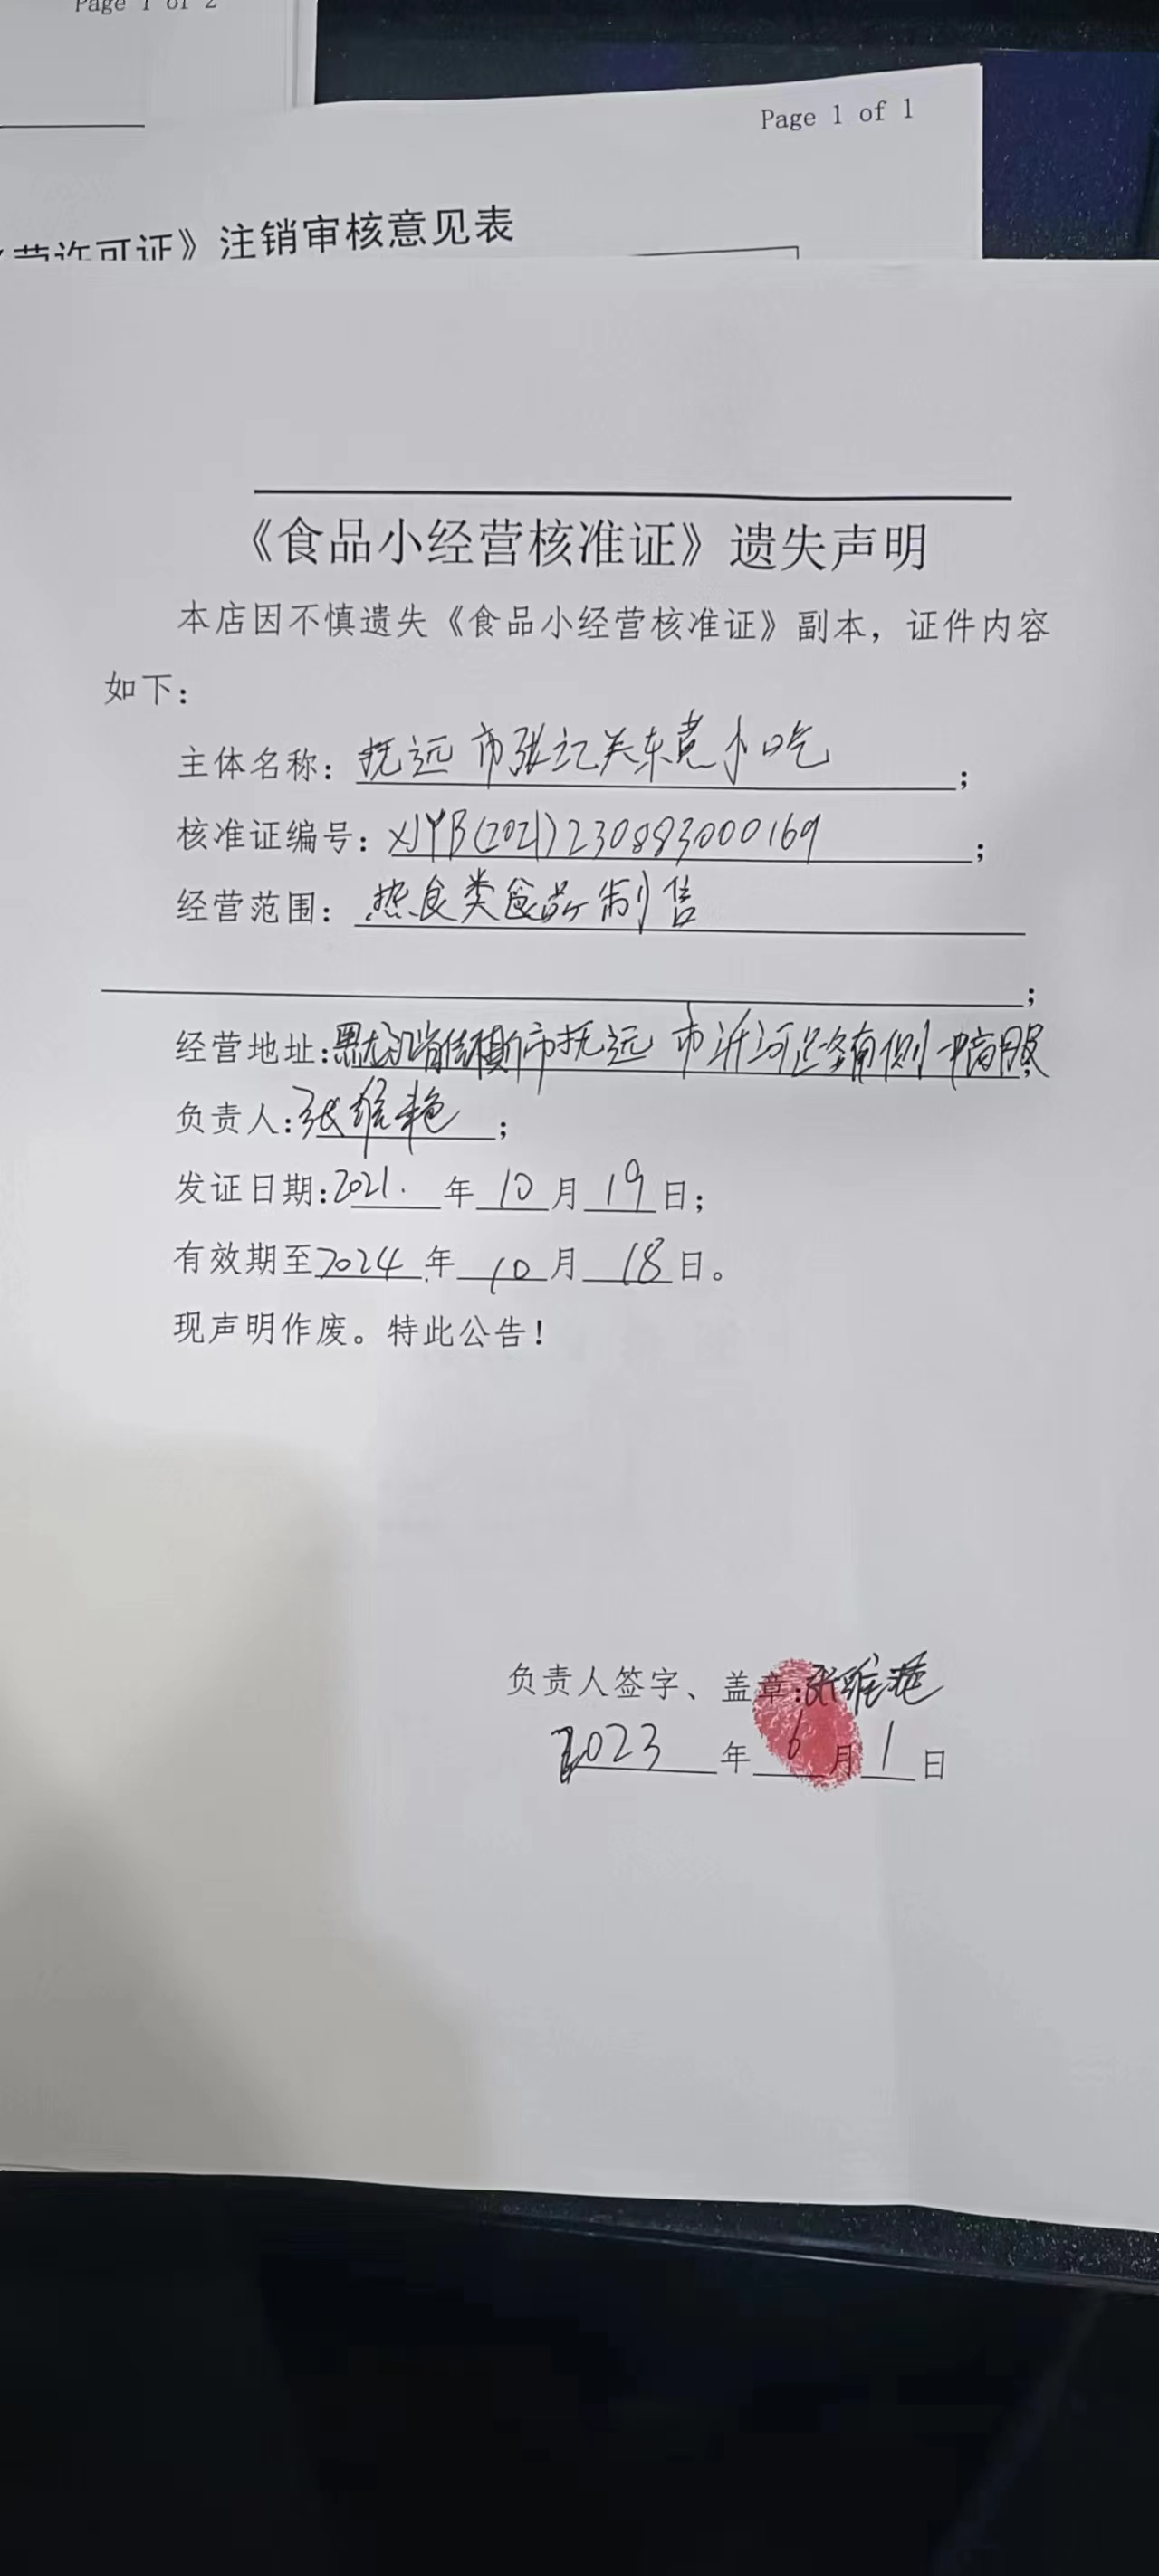 Page 1 of 2
Page 1 of 1
营许可证》注销审核意见表
《食品小经营核准证》遗失声明
本店因不慎遗失《食品小经营核准证》副本，证件内容
如下：
主体名称：抚远市张记关东煮小吃；
核准证编号：XJYB(2021)230883000169；
经营范围：热食类食品制售
；
经营地址：黑龙江省佳木斯市抚远市沂河路南侧
负责人：张维艳；
发证日期：2021.年10月19日；
有效期至2024年10月18日。
现声明作废。特此公告！
负责人签字、盖章：张维艳
2023年6月1日